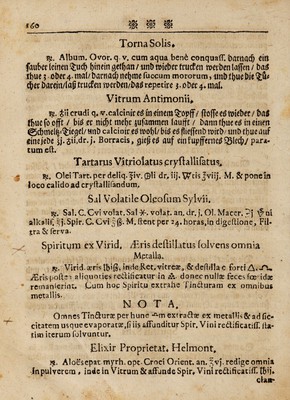 160
Torna Solis.
℞. Album. Ovor. q. v. cum aqua benè conquass. darnach ein
sauber leinen Tuch hinein gethan/ und wieder trucken werden lassen/ das
thue 3. oder 4. mal/ darnach nehme succum mororum, und thue die Tü-
cher darein/ laß trucken werden/ das repetire 3. oder 4. mal.
Vitrum Antimonii.
℞. ʒii crudi q. v. calcinir es in einem Topff/ stosse es wieder/ das
thue so offt/ bis er nicht mehr zusammen laufft/ dann thue es in einen
Schmeltz-Tiegel/ und calcinir es wohl/ bis es fliessend wird/ und thue auf
eine jede ʒj. ʒii. dr. j. Borracis, gieß es auf ein kupffernes Blech/ para-
tum est.
Tartarus Vitriolatus crystallisatus.
℞. Olei Tart. per deliq. ʒiv. Oli dr. iij. Wein ʒviij. M. & pone in
loco calido ad crystallisandum.
Sal Volatile Oleosum Sylvii.
℞. Sal. C. C. vi volat. Sal ✶. volat. an. dr. j. Ol. Macer.
alkalis, Spir. C. C. M. stent per 24. horas, in digestione, Fil-
tra & serva.
Spiritum ex Virid. Æris destillatus solvens omnia
Metalla.
℞. Virid. æris inde Ret. vitreæ, & destilla e forti △.
Æris postea aliquoties rectificatur in donec nullæ feces fœtidæ
remanserint. Cum hoc Spiritu extrahe Tincturam ex omnibus
metallis.
NOTA,
Omnes Tincturæ per hunc extractæ ex metallis & ad sic-
citatem usque evaporatæ, si iis affunditur Spir. Vini rectificatiss. sta-
tim iterum solvuntur.
Elixir Proprietat. Helmont.
℞. Aloësepat. myrrh. opt. Croci Orient. an. ʒvj. redige omnia
in pulverem, inde in Vitrum & affunde Spir. Vini rectificatiss. lbij.
clau-